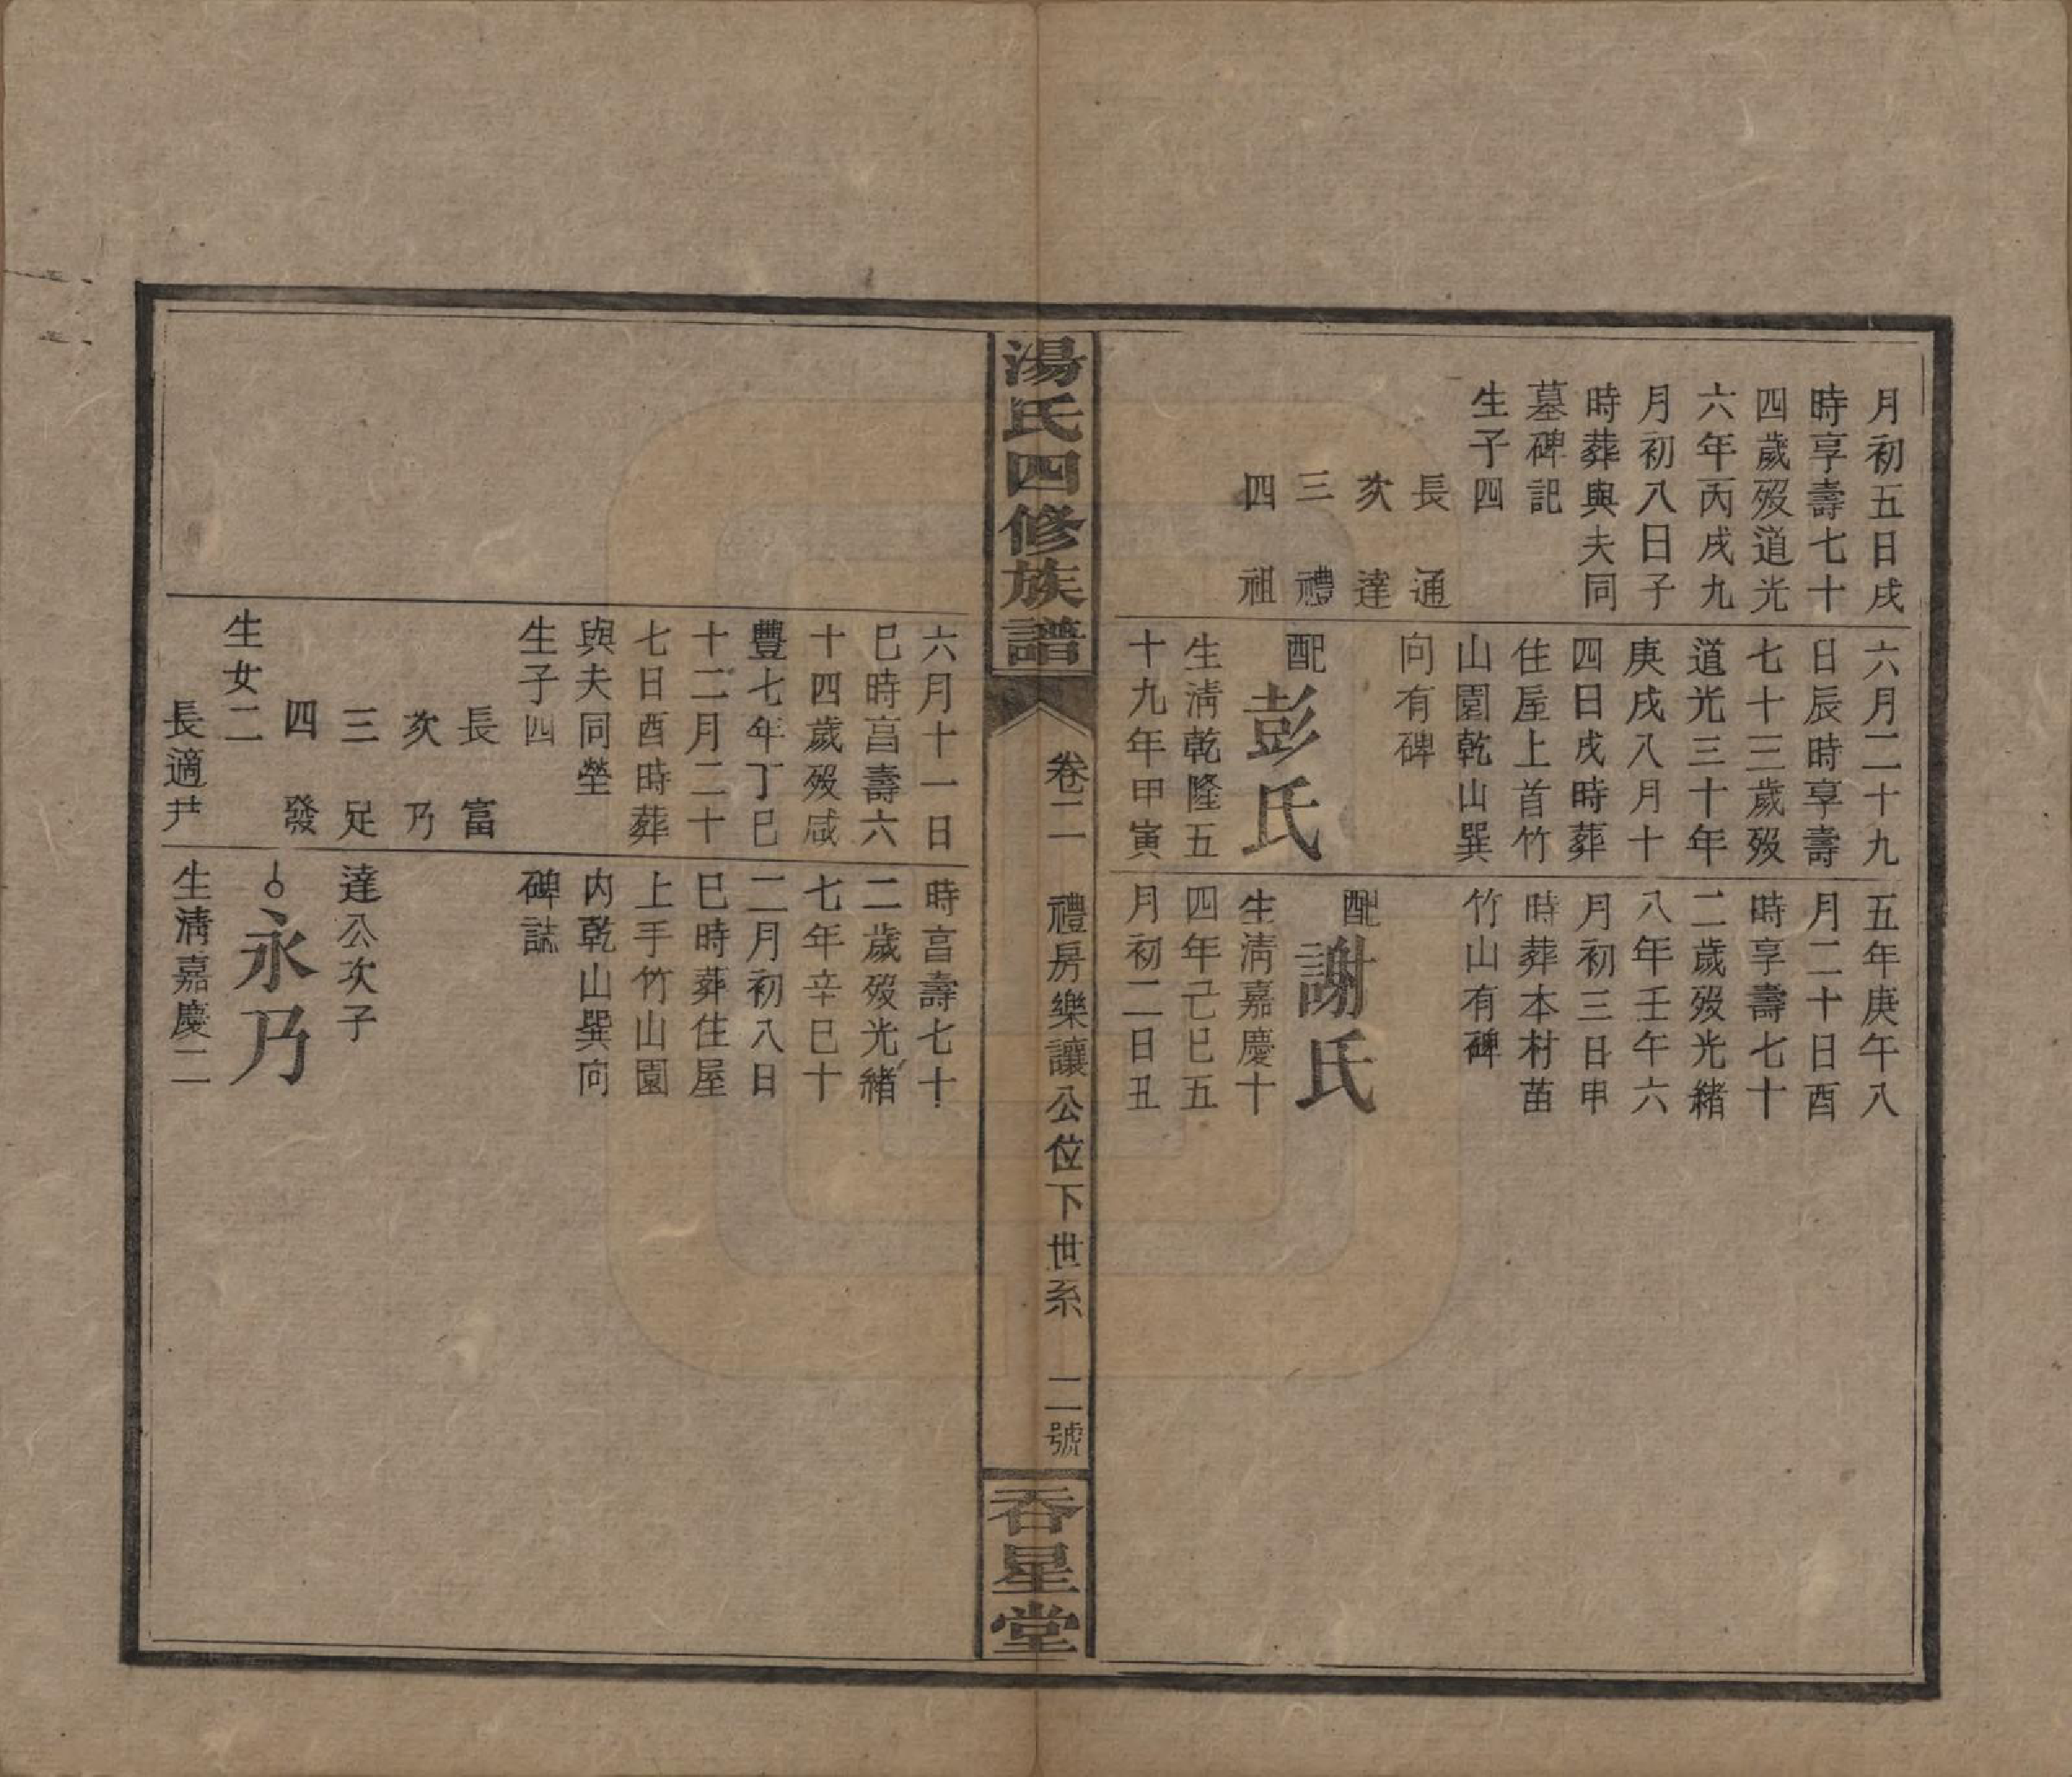 月初五日戌
時享壽七十
四歲歿道光
六年丙戌九
月初八日子
時葬與夫同
墓碑記
生子四
長 通
次 達
三 禮
四 祖
六月二十九
日辰時享壽
七十三歲歿
道光三十年
庚戌八月十
四日戌時葬
住屋上首竹
山園乾山巽
向有碑
配彭氏
生淸乾隆五
十九年甲寅
五年庚午八
月二十日酉
時享壽七十
二歲歿光緒
八年壬午六
月初三日申
時葬本村苗
竹山有碑
配謝氏
生淸嘉慶十
四年己巳五
月初二日丑
湯氏四修族譜
卷二 禮房樂讓公位下世系 二號
吞星堂
六月十一日
巳時亯壽六
十四歲歿咸
豐七年丁巳
十二月二十
七日酉時葬
與夫同塋
生子四
長 富
次 乃
三 足
四 發
生女二
長適尹
時亯壽七十
二歲歿光緒
七年辛巳十
二月初八日
巳時葬住屋
上手竹山園
内乾山巽向
碑誌
達公次子
永乃
生淸嘉慶二